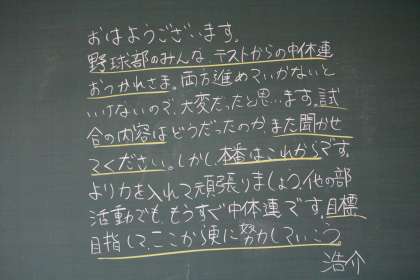 おはようございます。
野球部のみんな、テストからの中体連
おつかれさま。両方進めていかないと
いけないので、大変だったと思います。試
合の内容はどうだったのか、また聞かせ
てください。しかし本番はこれからです。
より力を入れて頑張りましょう。他の部
活動でも、もうすぐ中体連です。目標
目指して、ここから更に努力していこう
浩介